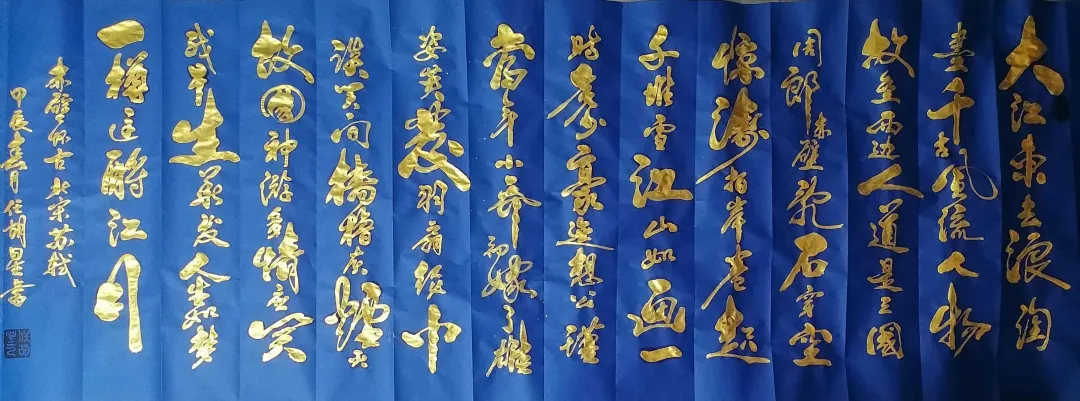 大江東去浪淘
盡千古風流人物
故垒西边人道是三國
周郎赤壁乱石穿空
惊涛拍岸卷起
千堆雪江山如画一
時多少豪杰遥想公瑾
當年小乔初嫁了雄
姿英发羽扇纶巾
谈笑间樯橹灰煙灭
故國神游多情应笑
我早生华发人生如梦
一樽还酹江月
赤壁怀古北宋苏轼
甲辰月胡星